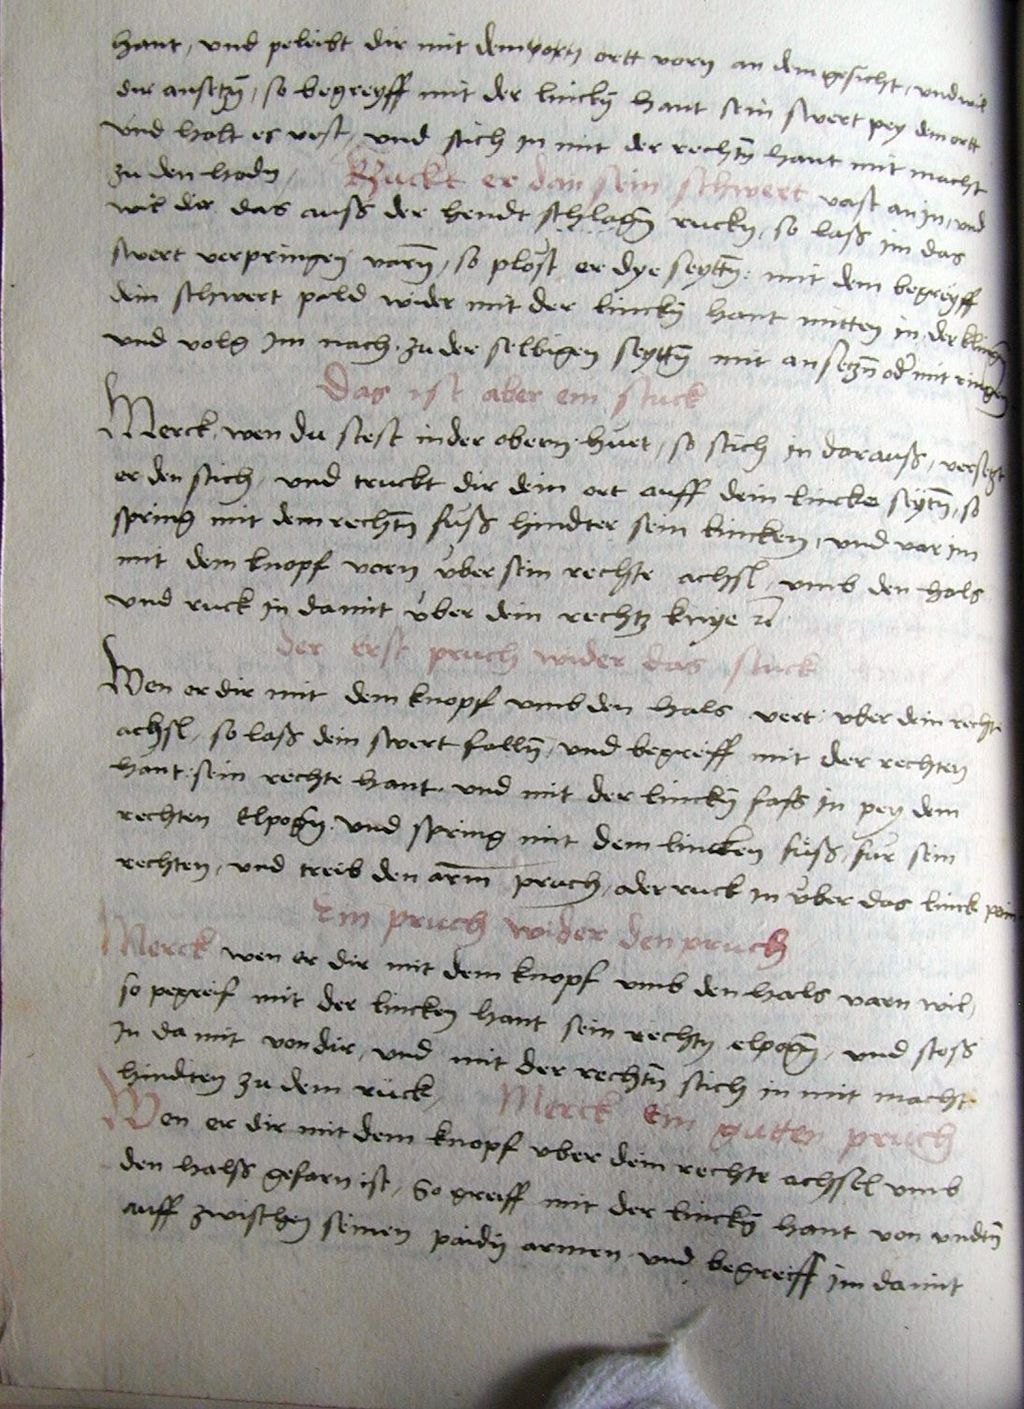 hant, und peleibt dir mit dem vorn ortt vorn an dem gesicht, und wil
dir ansetzn̄, so begreyff mit der linckn̄ hant sein swert pey dem ortt
und halt es vest, und stich in mit der rechtn̄ hant mit macht
zu den hodn, Ruckt er dan sein schwert vast an in, und
wil dir das auß der hendt schlagn̄ ruckn, so laß im das
swert verpringen varn̄, so plöst er dye seyttn̄: mit dem begreyff
dein schwert pald wider mit der linckn̄ hant mitten in der klingn̄
und volg im nach zu der selbigen seyttn̄ mit ansetzn̄ oder mit ringen
Das ist aber ein stuck
Merck, wen du stest in der obern huet, so stich in darauß, versetzt
er den stich, und truckt dir dein ort auff dein lincke seytn̄, so
spring mit dem rechtn̄ fuß hindter sein lincken, und var im
mit dem knopf vorn über sein rechte achsl, umb den hals
und ruck in damit über dein rechtz knye
der erst pruch wider das stuck
Wen er dir mit dem knopf umb den hals vert, uber dein rechte
achsl, so laß dein swert falln̄, und begreiff mit der rechten
hant sein rechte hant, und mit der linckn̄ faß in pey dem
rechten Elpogn̄, und spring mit dem lincken fuß, fur sein
rechten, und treib den arm̄ pruch, oder ruck in über das linck pain
Ein pruch wider den pruch
Merck wen er dir mit dem knopf umb den hals varn wil,
so pegreif mit der lincken hant sein rechtn elpogn̄, und stoß
In da mit von dir, und mit der rechtn̄ stich in mit macht
hindten zu dem rück, Merck Ein gutten pruch
Wen er dir mit dem knopf uber dein rechte achssel umb
den halß gefarn ist, So greiff mit der linckn̄ hant von undtn̄
auff zwischen seinen paidn armen und begreiff im damit